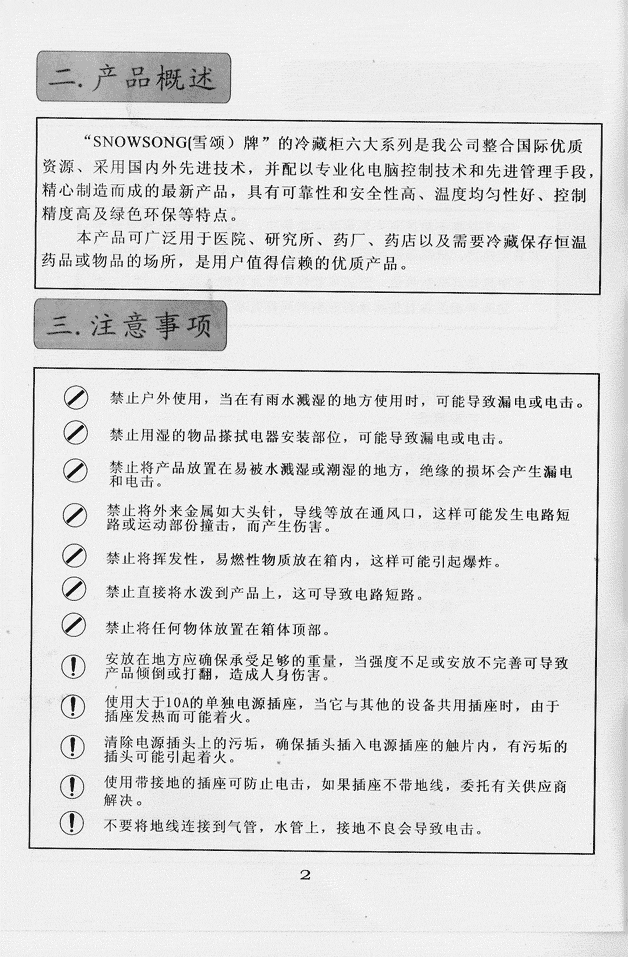 二.产品概述
“SNOWSONG(雪颂）牌”的冷藏柜六大系列是我公司整合国际优质
资源、采用国内外先进技术，并配以专业化电脑控制技术和先进管理手段，
精心制造而成的最新产品，具有可靠性和安全性高、温度均匀性好、控制
精度高及绿色环保等特点。
本产品可广泛用于医院、研究所、药厂、药店以及需要冷藏保存恒温
药品或物品的场所，是用户值得信赖的优质产品。
三.注意事项
禁止户外使用，当在有雨水溅湿的地方使用时，可能导致漏电或电击。
禁止用湿的物品搽拭电器安装部位，可能导致漏电或电击。
禁止将产品放置在易被水溅湿或潮湿的地方，绝缘的损坏会产生漏电
和电击。
禁止将外来金属如大头针，导线等放在通风口，这样可能发生电路短
路或运动部份撞击，而产生伤害。
禁止将挥发性，易燃性物质放在箱内，这样可能引起爆炸。
禁止直接将水泼到产品上，这可导致电路短路。
禁止将任何物体放置在箱体顶部。
安放在地方应确保承受足够的重量，当强度不足或安放不完善可导致
产品倾倒或打翻，造成人身伤害。
使用大于10A的单独电源插座，当它与其他的设备共用插座时，由于
插座发热而可能着火。
清除电源插头上的污垢，确保插头插入电源插座的触片内，有污垢的
插头可能引起着火。
使用带接地的插座可防止电击，如果插座不带地线，委托有关供应商
解决。
不要将地线连接到气管，水管上，接地不良会导致电击。
2